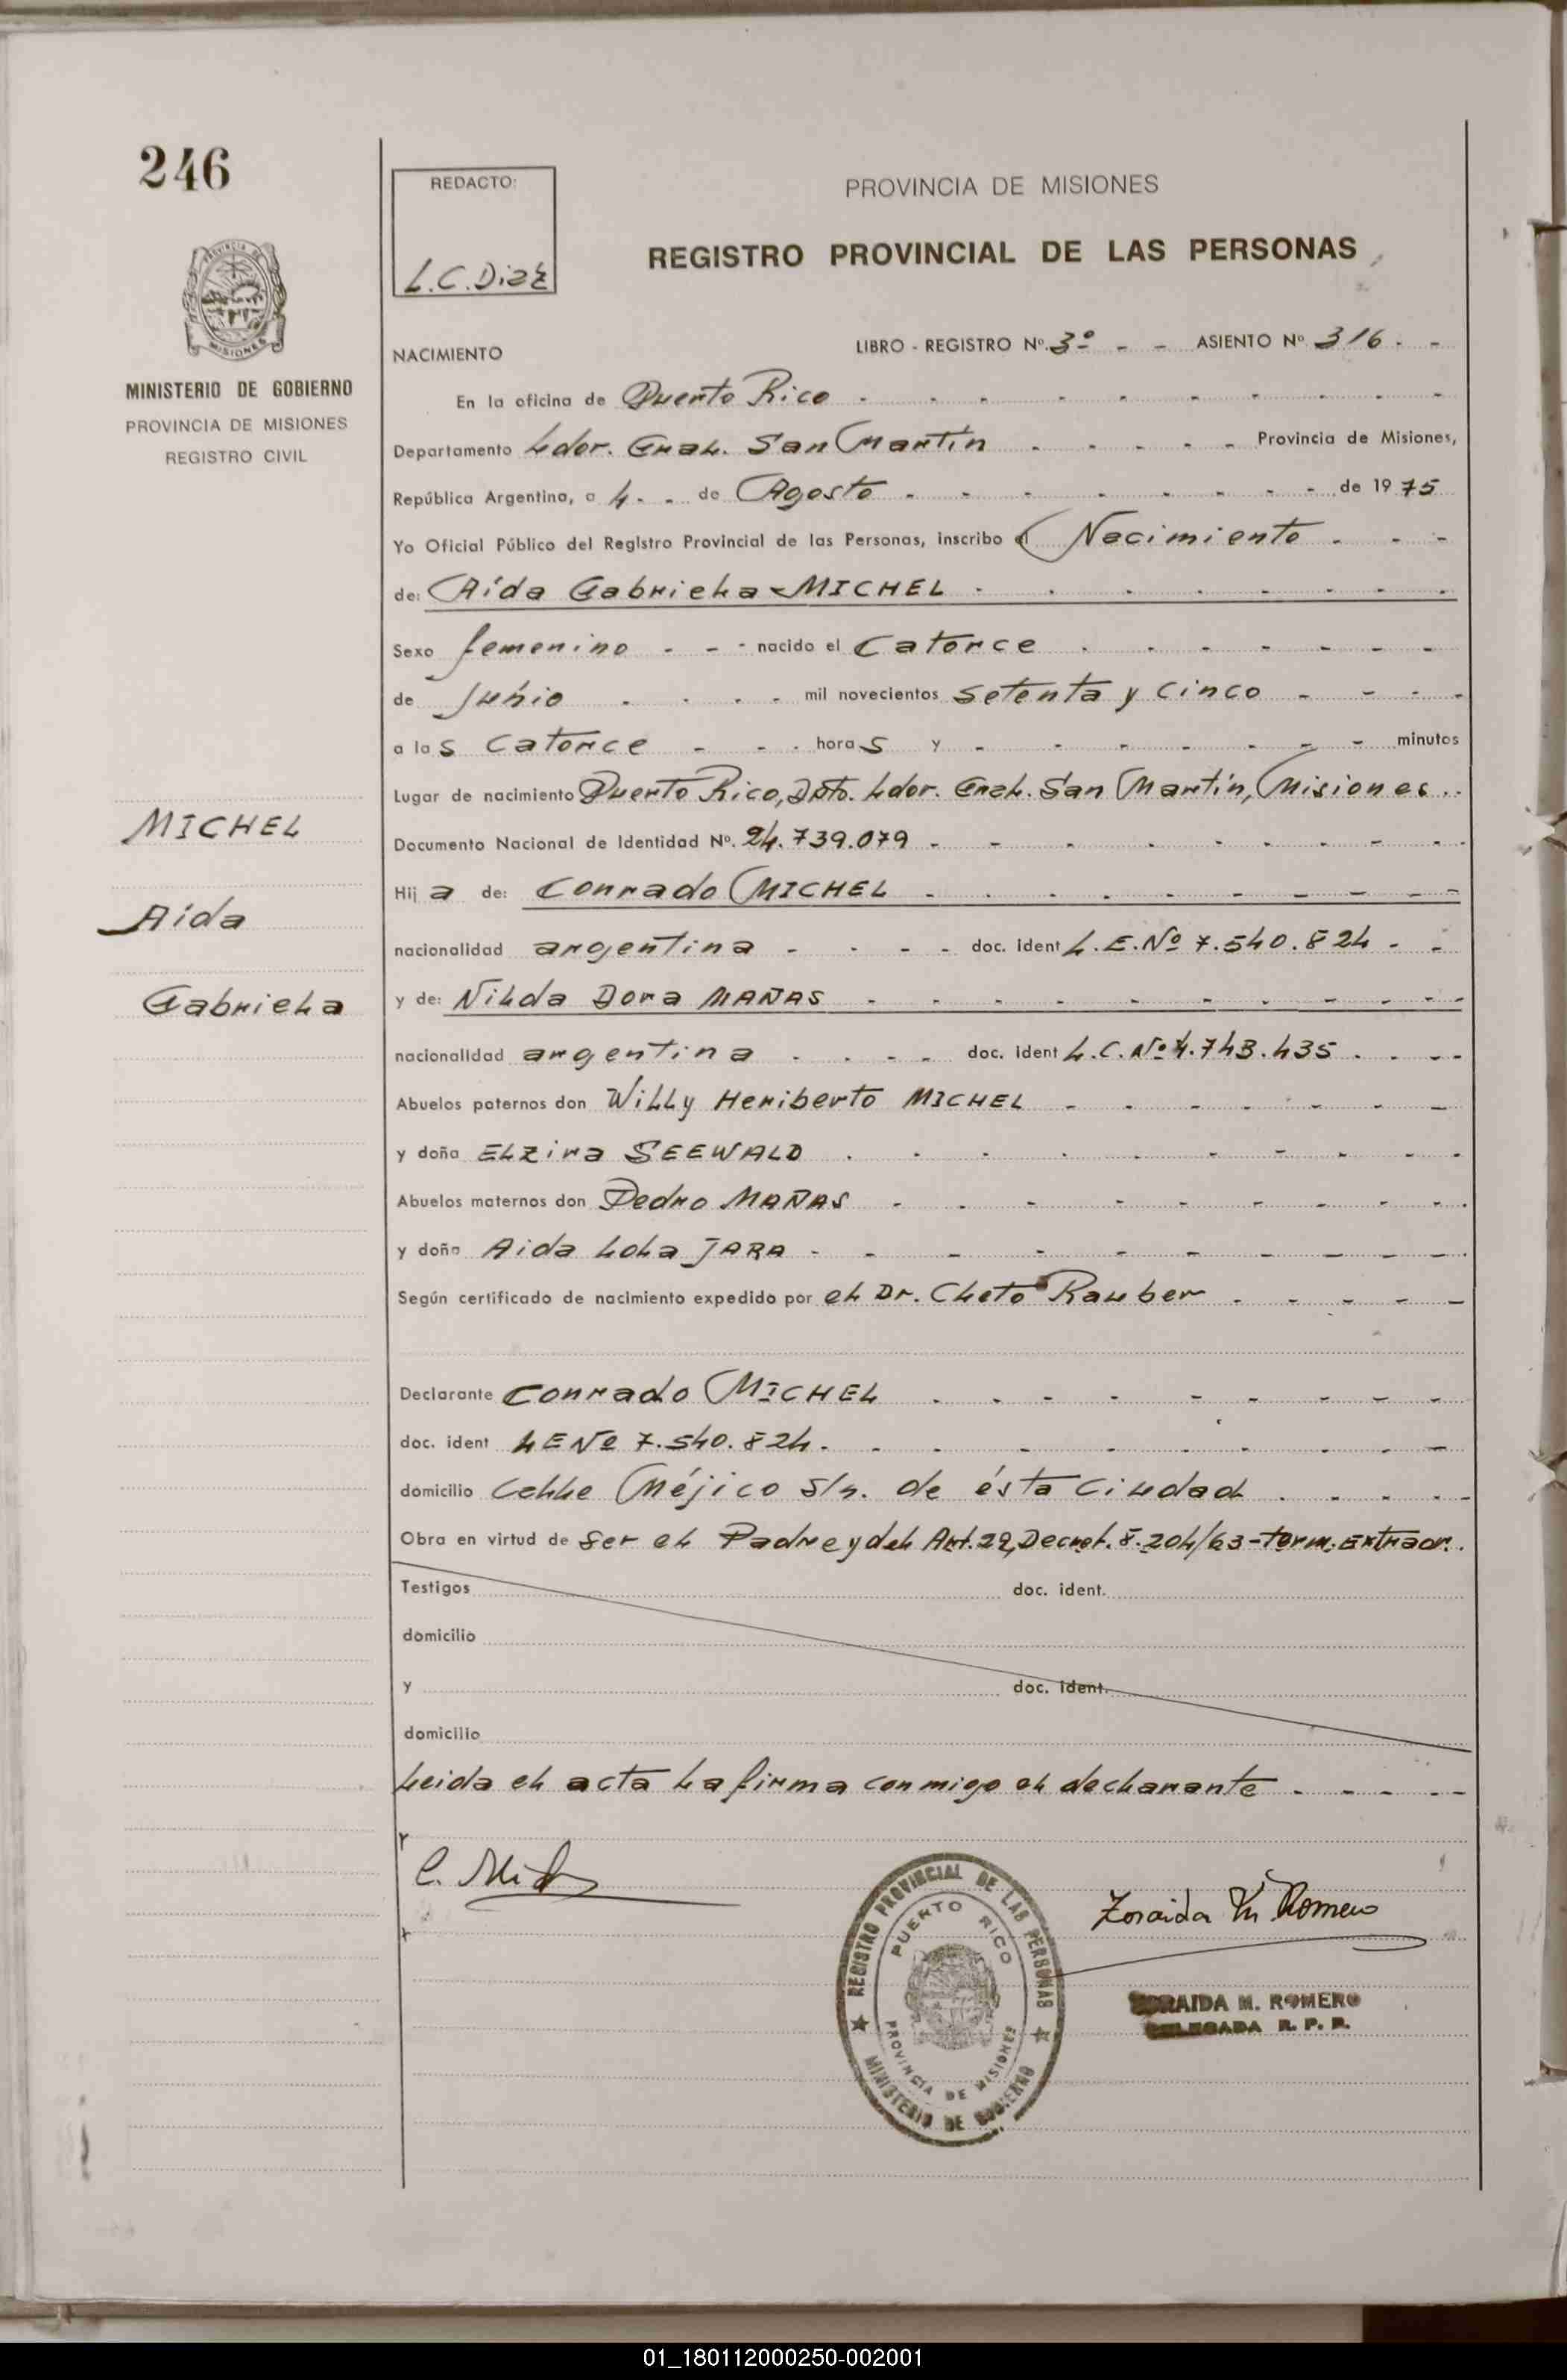 246
REDACTO:
L.C.Diaz
PROVINCIA DE MISIONES
REGISTRO PROVINCIAL DE LAS PERSONAS
PROVINCIA DE
MISIONES
MINISTERIO DE GOBIERNO
PROVINCIA DE MISIONES
REGISTRO CIVIL
NACIMIENTO LIBRO - REGISTRO Nº. 3º - - ASIENTO Nº 316. -
En la oficina de Puerto Rico
Departamento Ldor. Gral. San Martín Provincia de Misiones,
República Argentina, a 4 - - de Agosto de 1975
Yo Oficial Público del Registro Provincial de las Personas, inscribo el Nacimiento
de: Aída Gabriela MICHEL
Sexo femenino nacido el Catorce
de Julio mil novecientos setenta y cinco
a las catorce horas y minutos
Lugar de nacimiento Puerto Rico, Dpto. Ldor. Gral. San Martín, Misiones..
Documento Nacional de Identidad Nº. 24.739.079
Hija de: Conrado MICHEL
nacionalidad argentina doc. ident L.E.Nº 7.540.824
y de: Nilda Dora MAÑAS
nacionalidad argentina doc. ident L.C.Nº 4.743.435
Abuelos paternos don Willy Heriberto MICHEL
y doña Elzira SEEWALD
Abuelos maternos don Pedro MAÑAS
y doña Aida Lola JARA
Según certificado de nacimiento expedido por el Dr. Cleto Rauber
Declarante Conrado MICHEL
doc. ident LE Nº 7.540.824.
domicilio Calle Méjico S/n. de ésta Ciudad
Obra en virtud de ser el Padre y del Art.29, Decret. 8.204/63-term. Extraor.
Testigos doc. ident.
domicilio
y doc. ident.
domicilio
Leida el acta La firma conmigo el declarante
MICHEL
Aída
Gabriela
C. Michel
REGISTRO PROVINCIAL DE LAS PERSONAS
PUERTO RICO
PROVINCIA DE MISIONES
MINISTERIO DE GOBIERNO
Zoraida M. Romero
ZORAIDA M. ROMERO
DELEGADA R. P. P.
01_180112000250-002001